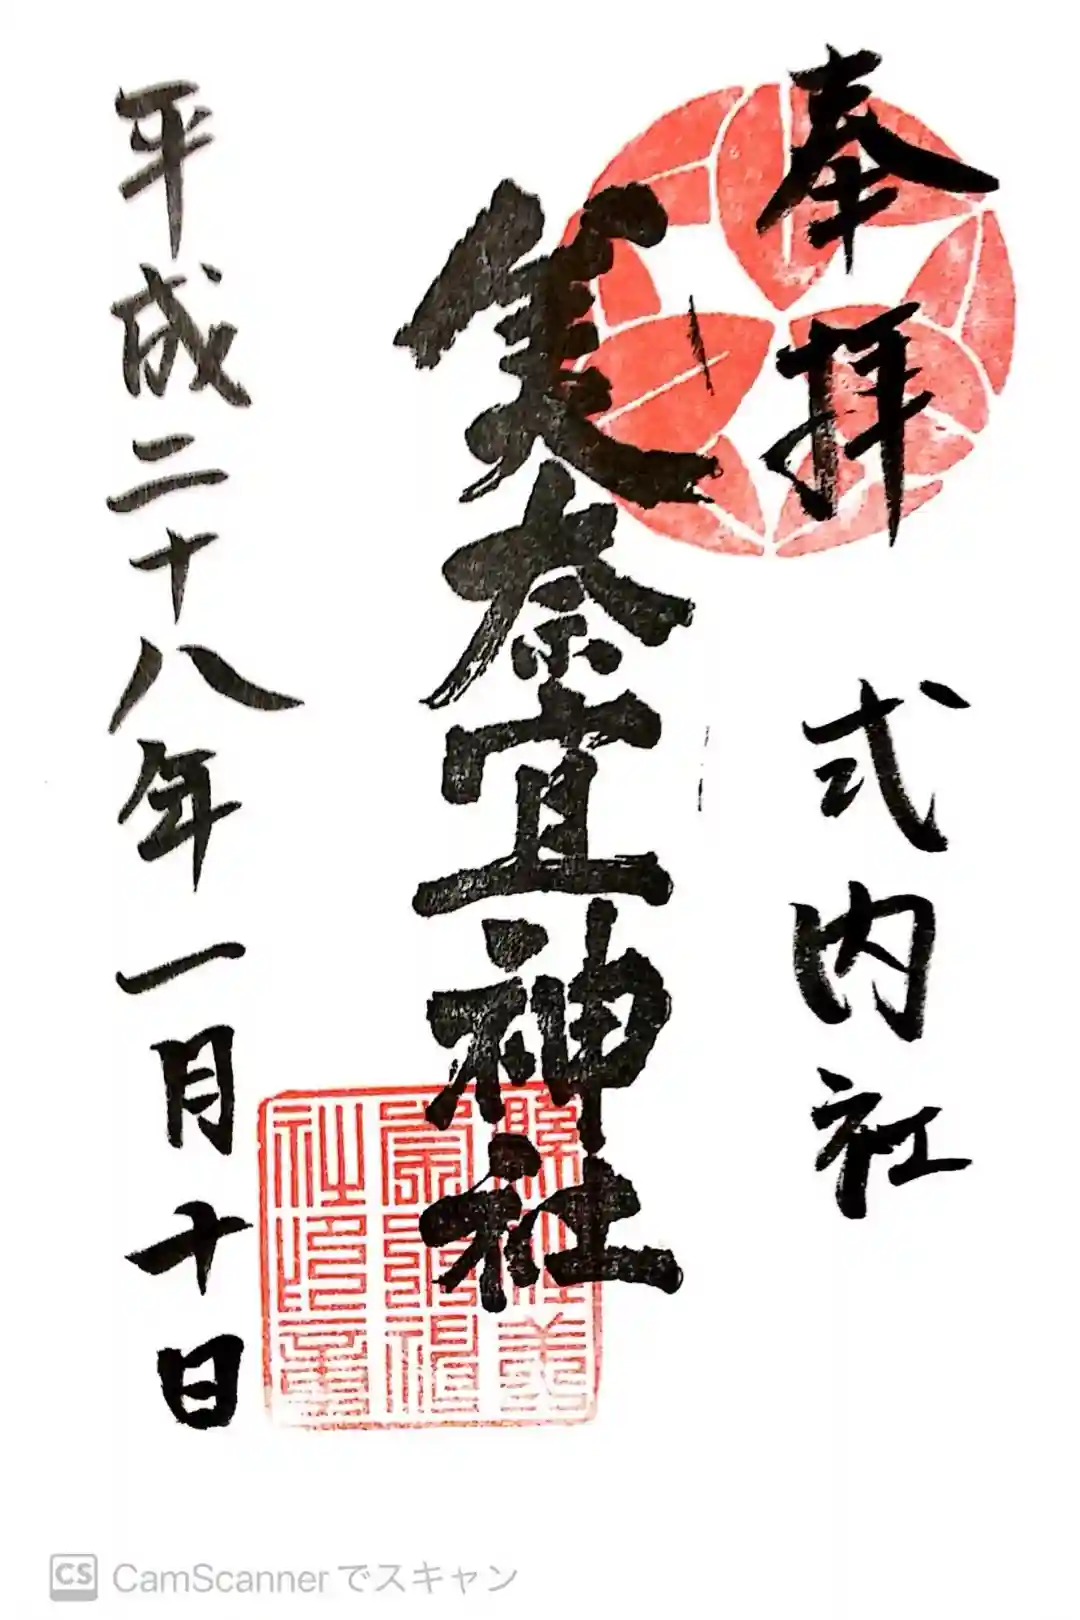 奉拝　式内社
美奈宜神社
縣社美
奈宜神
社印章
平成二十八年一月十日
CS CamScannerでスキャン